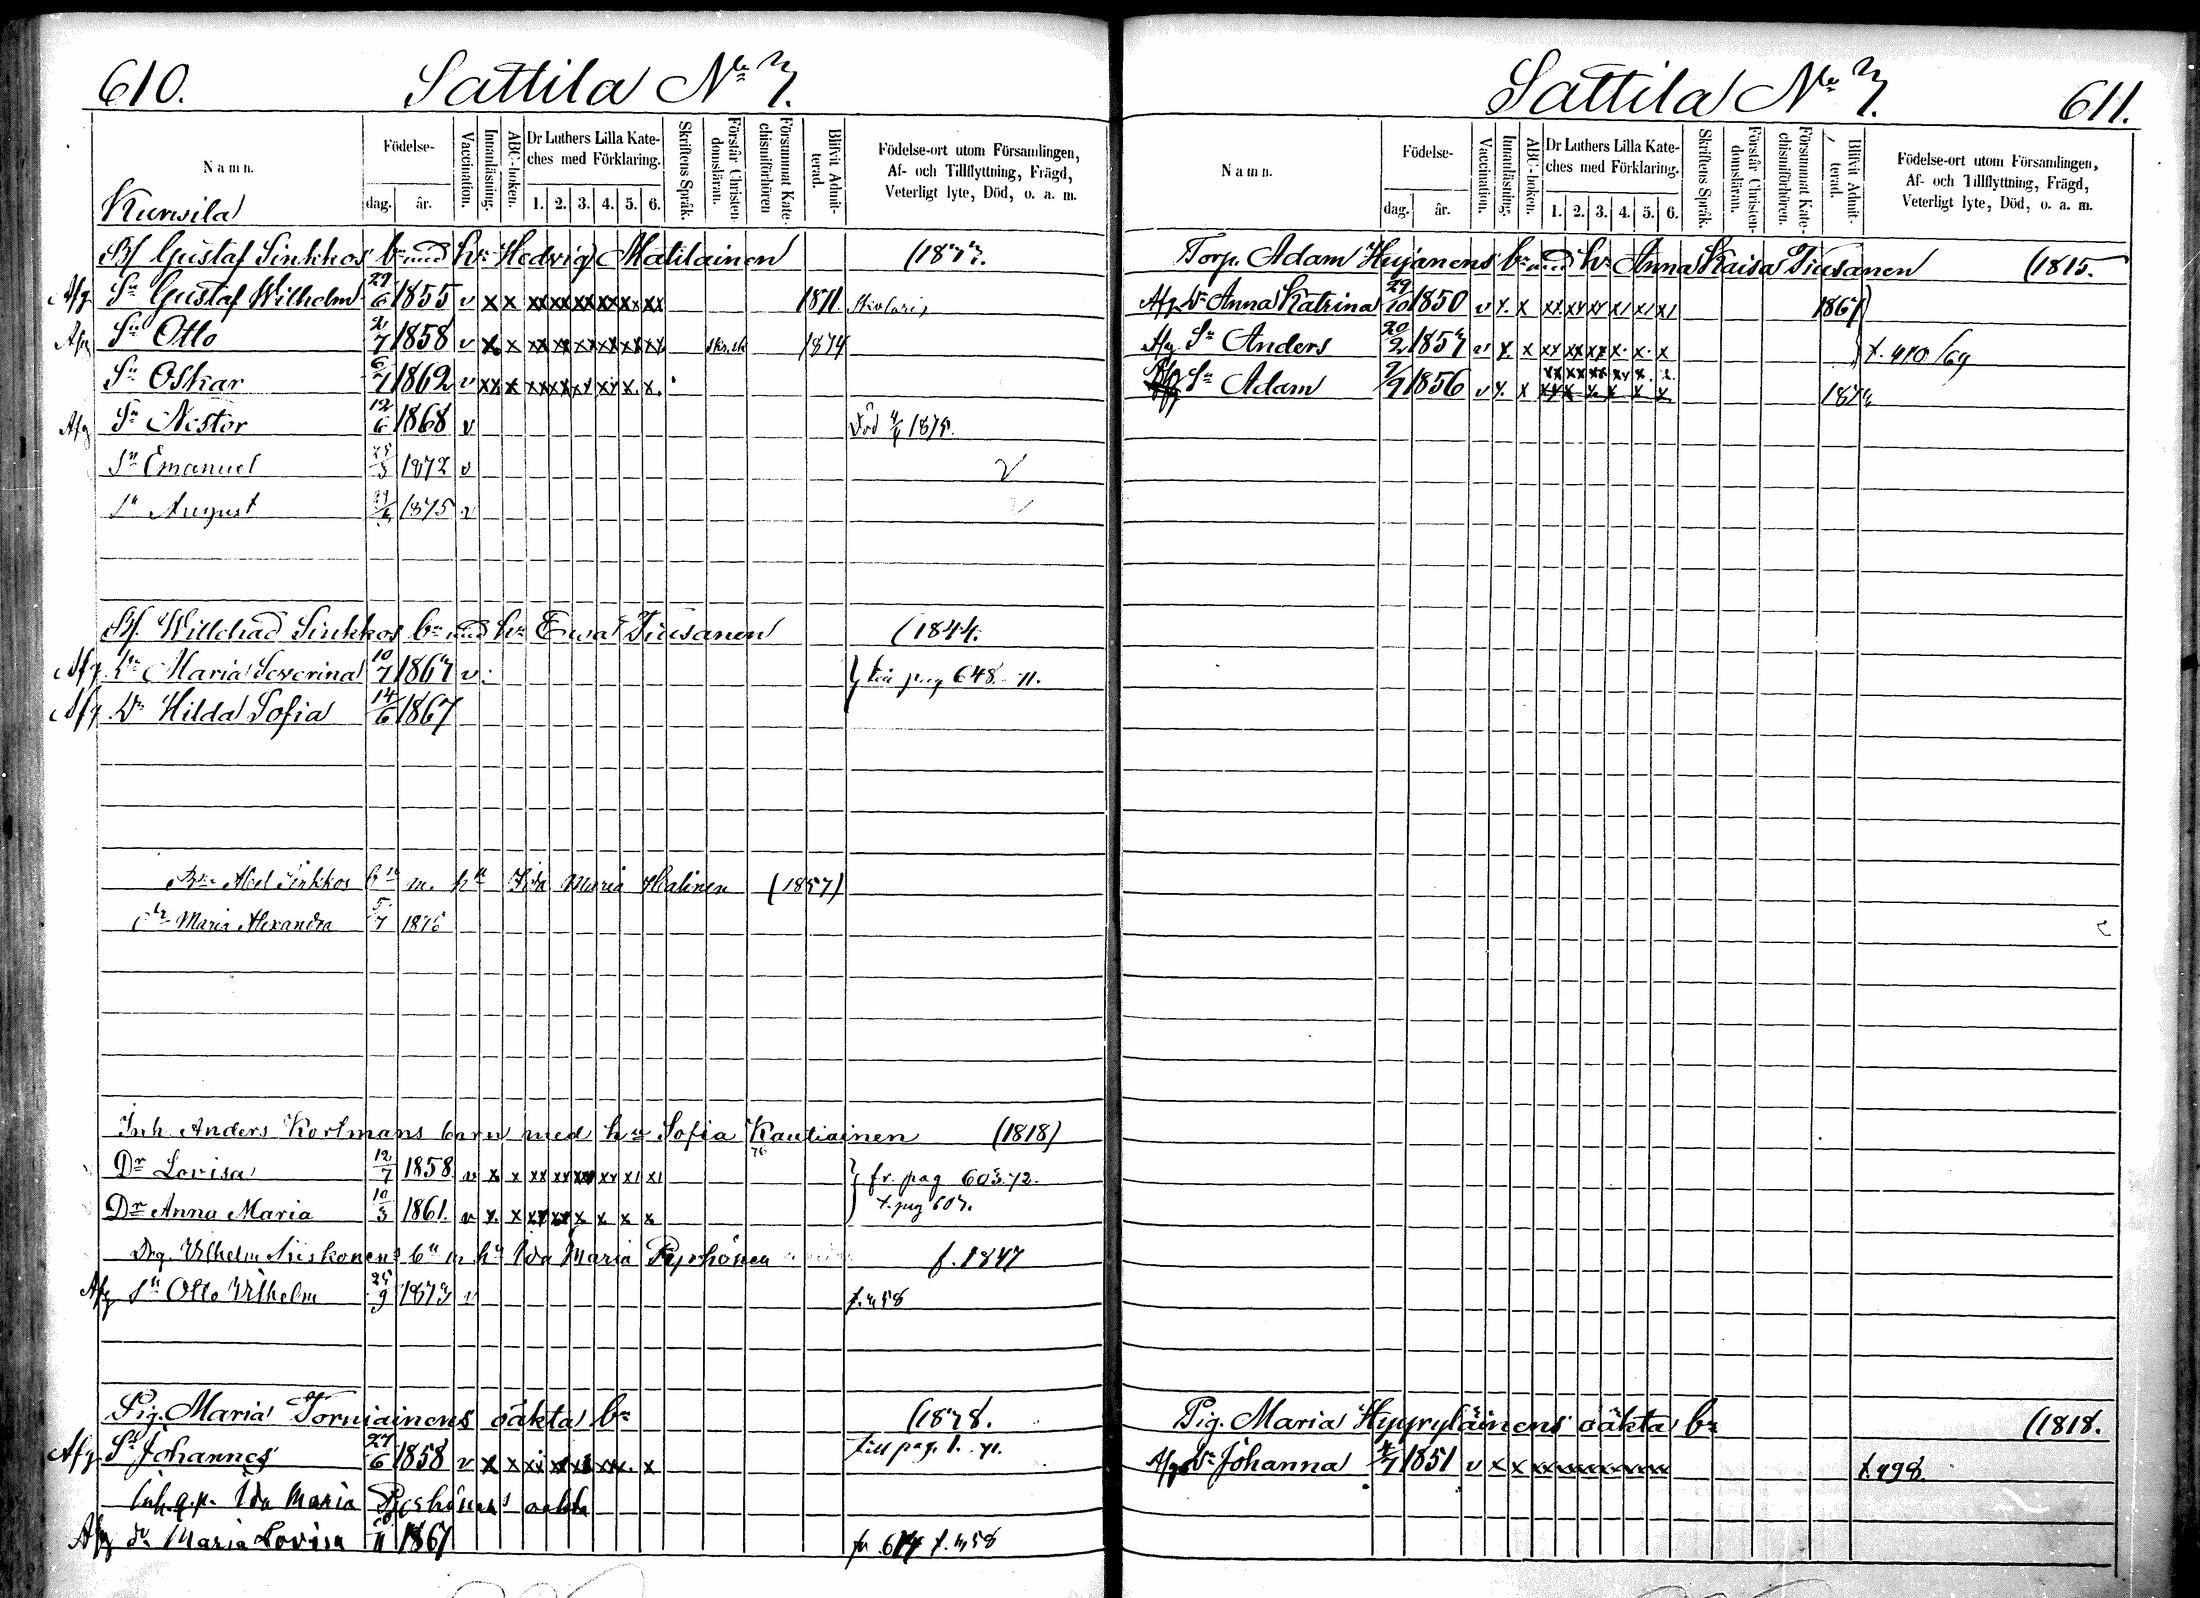 610. Sattila No 7.
Namn. Födelse- dag. år. Vaccination. Innanläsning. ABC-boken. Dr Luthers Lilla Kateches med Förklaring. 1. 2. 3. 4. 5. 6. Skriftens Språk. Förstår Christendomsläran. Försummat Katechismiförhören Blifvit Admitterad. Födelse-ort utom Församlingen, Af- och Tillflyttning, Frägd, Veterligt lyte, Död, o. a. m.
Kurvila
Bf Gustaf Sinkkos bn med hu Hedvig Matilainen
Afg Sn Gustaf Wilhelm 6 1855 v x x xx xx xx xx xx xx 1871.
Afg Sn Otto 2/7 1858 v x x xx xx xx xx xx xx 1874
Sn Oskar 6/7 1862 v xx x xx xx xx xx x. x.
Afg Sn Nestor 12/6 1868 v Död 1875.
Sn Emanuel 25/3 1872 v
Sn August 1875 v
Bf. Willehad Sinkkos bn med hu Ewa Tiusanen (1844.
Afg Dr Maria Severina 10/7 1867 v. till pag 648. 71.
Afg Dr Hilda Sofia 14/6 1867
Abel Sinkkos bn m. hu Ida Maria Halinen (1857)
Dr Maria Alexandra 5/7 1876
Inh. Anders Kortmans barn med hu Sofia Kautiainen (1818)
76
Dr Lovisa 12/7 1858. v x x xx xx xx xx x1 x1 fr. pag 603. 72.
Dr Anna Maria 10/3 1861. v x x xx xx x x. x x t. pag 607.
Drg. Vilhelm Siiskonens bn m. hu Ida Maria Pyrhönen f. 1847
Afg Sn Otto Vilhelm 25/9 1873 v
Pig. Maria Torniainens oäkta bn
Afg Sn Johannes 27/6 1858 v x x xi xx xx xx. x till pag. 1. 71.
Inh. q.p. Ida Maria Pyrhönens oäkta
Afg Dr Maria Lovisa 11 1867 fr. 614
Sattila No 7. 611.
Namn. Födelse- dag. år. Vaccination. Innanläsning. ABC-boken. Dr Luthers Lilla Kateches med Förklaring. 1. 2. 3. 4. 5. 6. Skriftens Språk. Förstår Christendomsläran. Försummat Katechismiförhören. Blifvit Admitterad. Födelse-ort utom Församlingen, Af- och Tillflyttning, Frägd, Veterligt lyte, Död, o. a. m.
Torp. Adam Hujanens bn med hu Anna Kaisa Tiusanen (1815.
Afg Dr Anna Katrina 29/10 1850 v x. x xx xx xx x1 x1 x1 1867
Afg Sn Anders 20/2 1857 v x x xx xx xx x. x. x t. 410/69
xx xx xx xx x. x.
Afg Sn Adam 2/9 1856 v x. x xx x x. x x x
Pig. Maria Hyyryläinens oäkta bn (1818.
Afg Dr Johanna 1851 v x x xx xx xx xx xx xx t. 498